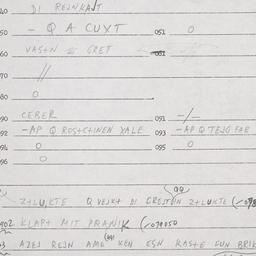 40 DI REJNKAJT
50 - Q A CUXT 051 0
60 VASTN ≡ GRET
70 //
80 0
90 CEBER 091 -/-
092 -AP Q ROSTCTINEN YALE 093 -AP Q TEJG FAR
094 0 095 0
096
Z+LUKTE Q VEJKT DI GREJTDIN Z+LUKTE
902 KLAPT MIT PRAWIK (√090050
03 AJEJ REJN AME KEN ESN KASTE FUN BRIK